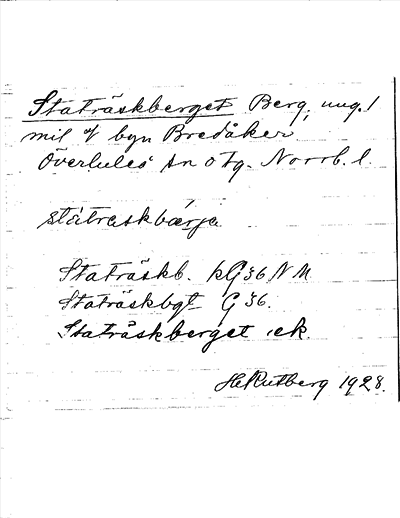 Staträskberget Berg, ung. 1
mil v byn Bredåker
Överlules sn o tg. Norrb. l.
ståtraskbærje
Staträskb. kG36NM
Staträskbgt G 36.
Staträskberget ek.
H Rutberg 1928.